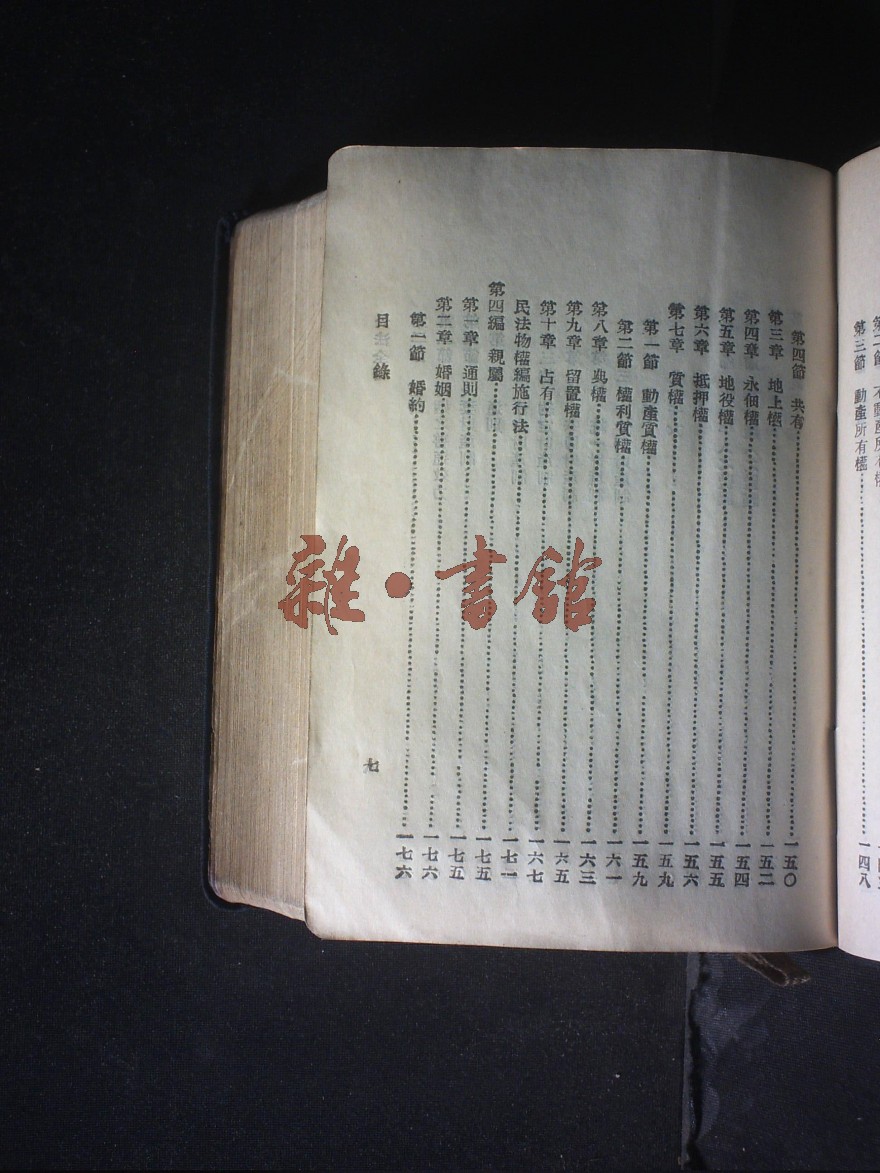 第二節 不動產所有權
第三節 動產所有權……一四八
第四節 共有……一五〇
第三章 地上權……一五二
第四章 永佃權……一五四
第五章 地役權……一五五
第六章 抵押權……一五六
第七章 質權……一五九
第一節 動產質權……一五九
第二節 權利質權……一六一
第八章 典權……一六三
第九章 留置權……一六五
第十章 占有……一六七
民法物權編施行法……一七一
第四編 親屬……一七五
第一章 通則……一七五
第二章 婚姻……一七六
第一節 婚約……一七六
目錄 七
雜·書館